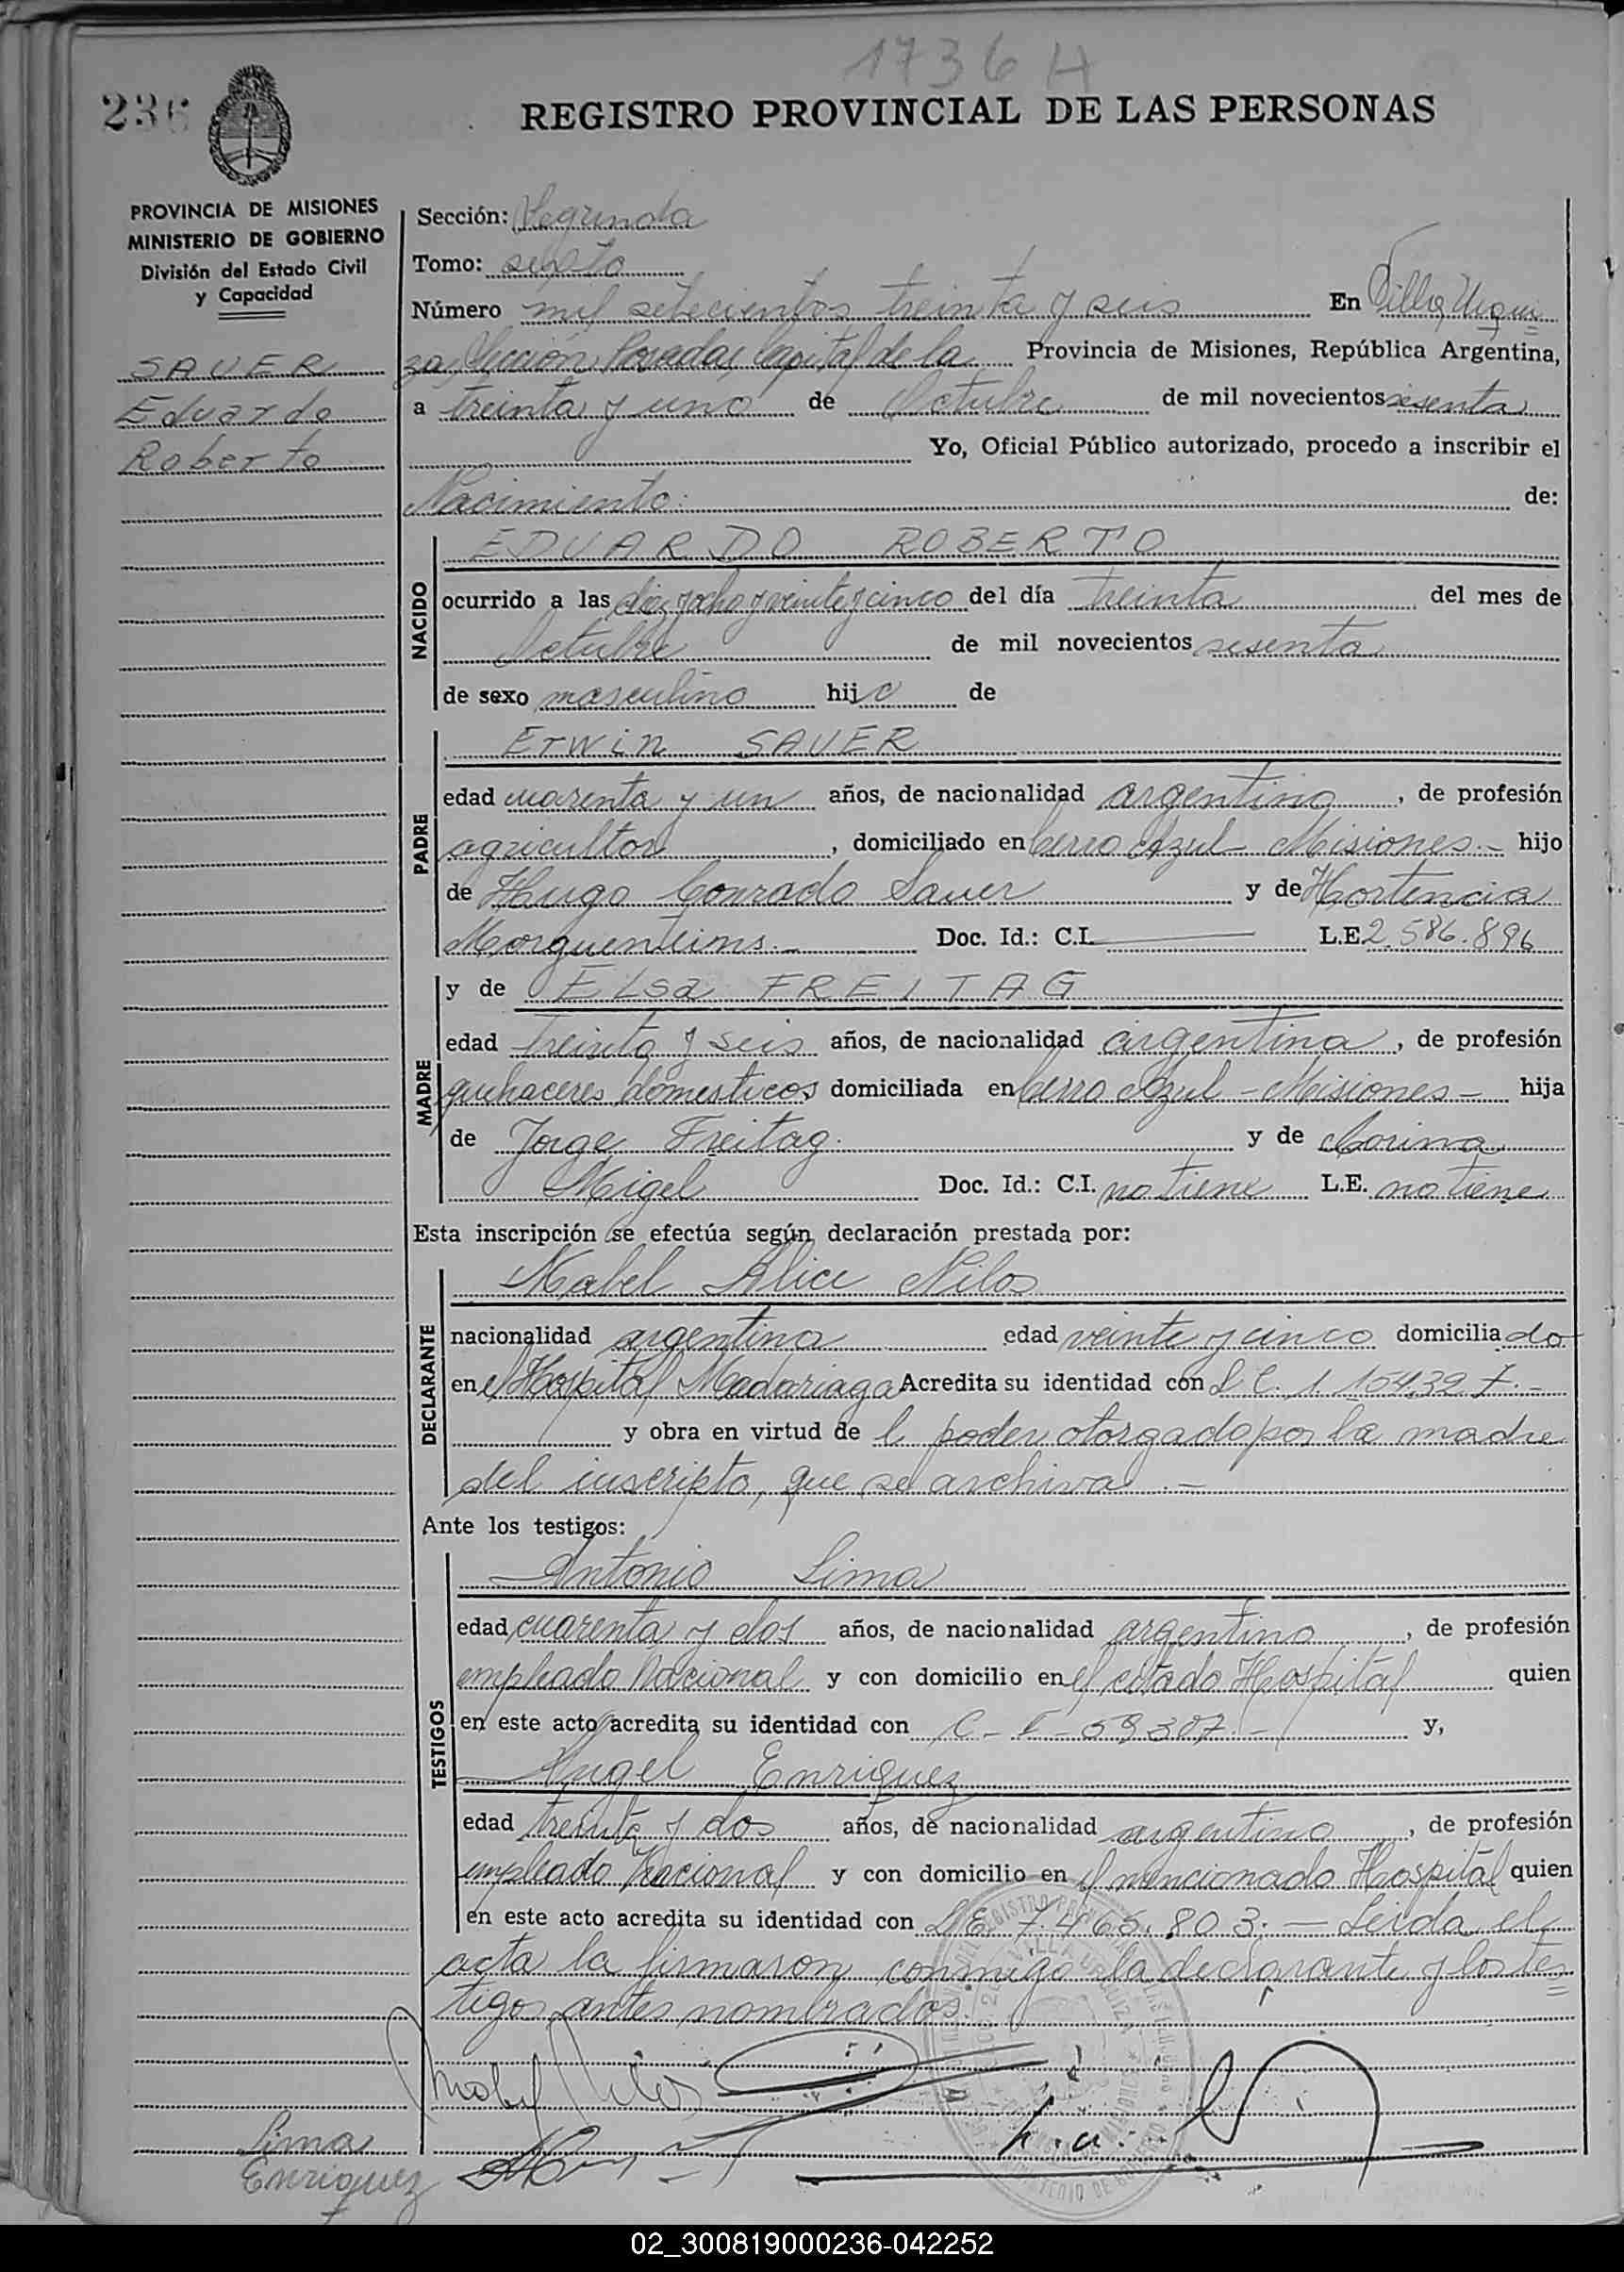 1736 H
236
REGISTRO PROVINCIAL DE LAS PERSONAS
PROVINCIA DE MISIONES
MINISTERIO DE GOBIERNO
División del Estado Civil
y Capacidad
SAUER
Eduardo
Roberto
Sección: Segunda
Tomo: sexto
Número mil setecientos treinta y seis En Villa Urqui=
za, Sección Posadas, Capital de la Provincia de Misiones, República Argentina,
a treinta y uno de Octubre de mil novecientos sesenta
Yo, Oficial Público autorizado, procedo a inscribir el
Nacimiento: de:
NACIDO
EDUARDO ROBERTO
ocurrido a las diez y ocho y veinte y cinco del día treinta del mes de
Octubre de mil novecientos sesenta
de sexo masculino hijo de
PADRE
Erwin SAUER
edad cuarenta y un años, de nacionalidad argentino, de profesión
agricultor, domiciliado en Cerro Azul - Misiones.- hijo
de Hugo Conrado Sauer y de Hortencia
Doc. Id.: C.I. L.E. 2.586.896
MADRE
y de Elsa FREITAG
edad treinta y seis años, de nacionalidad argentina, de profesión
quehaceres domesticos domiciliada en Cerro Azul - Misiones - hija
de Jorge Freitag. y de Corina
Migel Doc. Id.: C.I. no tiene L.E. no tiene
Esta inscripción se efectúa según declaración prestada por:
DECLARANTE
Mabel Alice Nilos
nacionalidad argentina edad veinte y cinco domiciliado
en el Hospital Madariaga Acredita su identidad con L.C. 1.154.327.-
y obra en virtud de l poder otorgado por la madre
del inscripto, que se archiva.-
Ante los testigos:
TESTIGOS
Antonio Lima
edad cuarenta y dos años, de nacionalidad argentino, de profesión
empleado Nacional y con domicilio en el citado Hospital quien
en este acto acredita su identidad con C-I-59307.- y,
Angel Enriquez
edad treinta y dos años, de nacionalidad argentino, de profesión
empleado Nacional y con domicilio en el mencionado Hospital quien
en este acto acredita su identidad con L.E. 7.465.803.- Leida el
acta la firmaron conmigo la declarante y los tes=
tigos antes nombrados.
Mabel Nilos
Lima
Enriquez
02_300819000236-042252